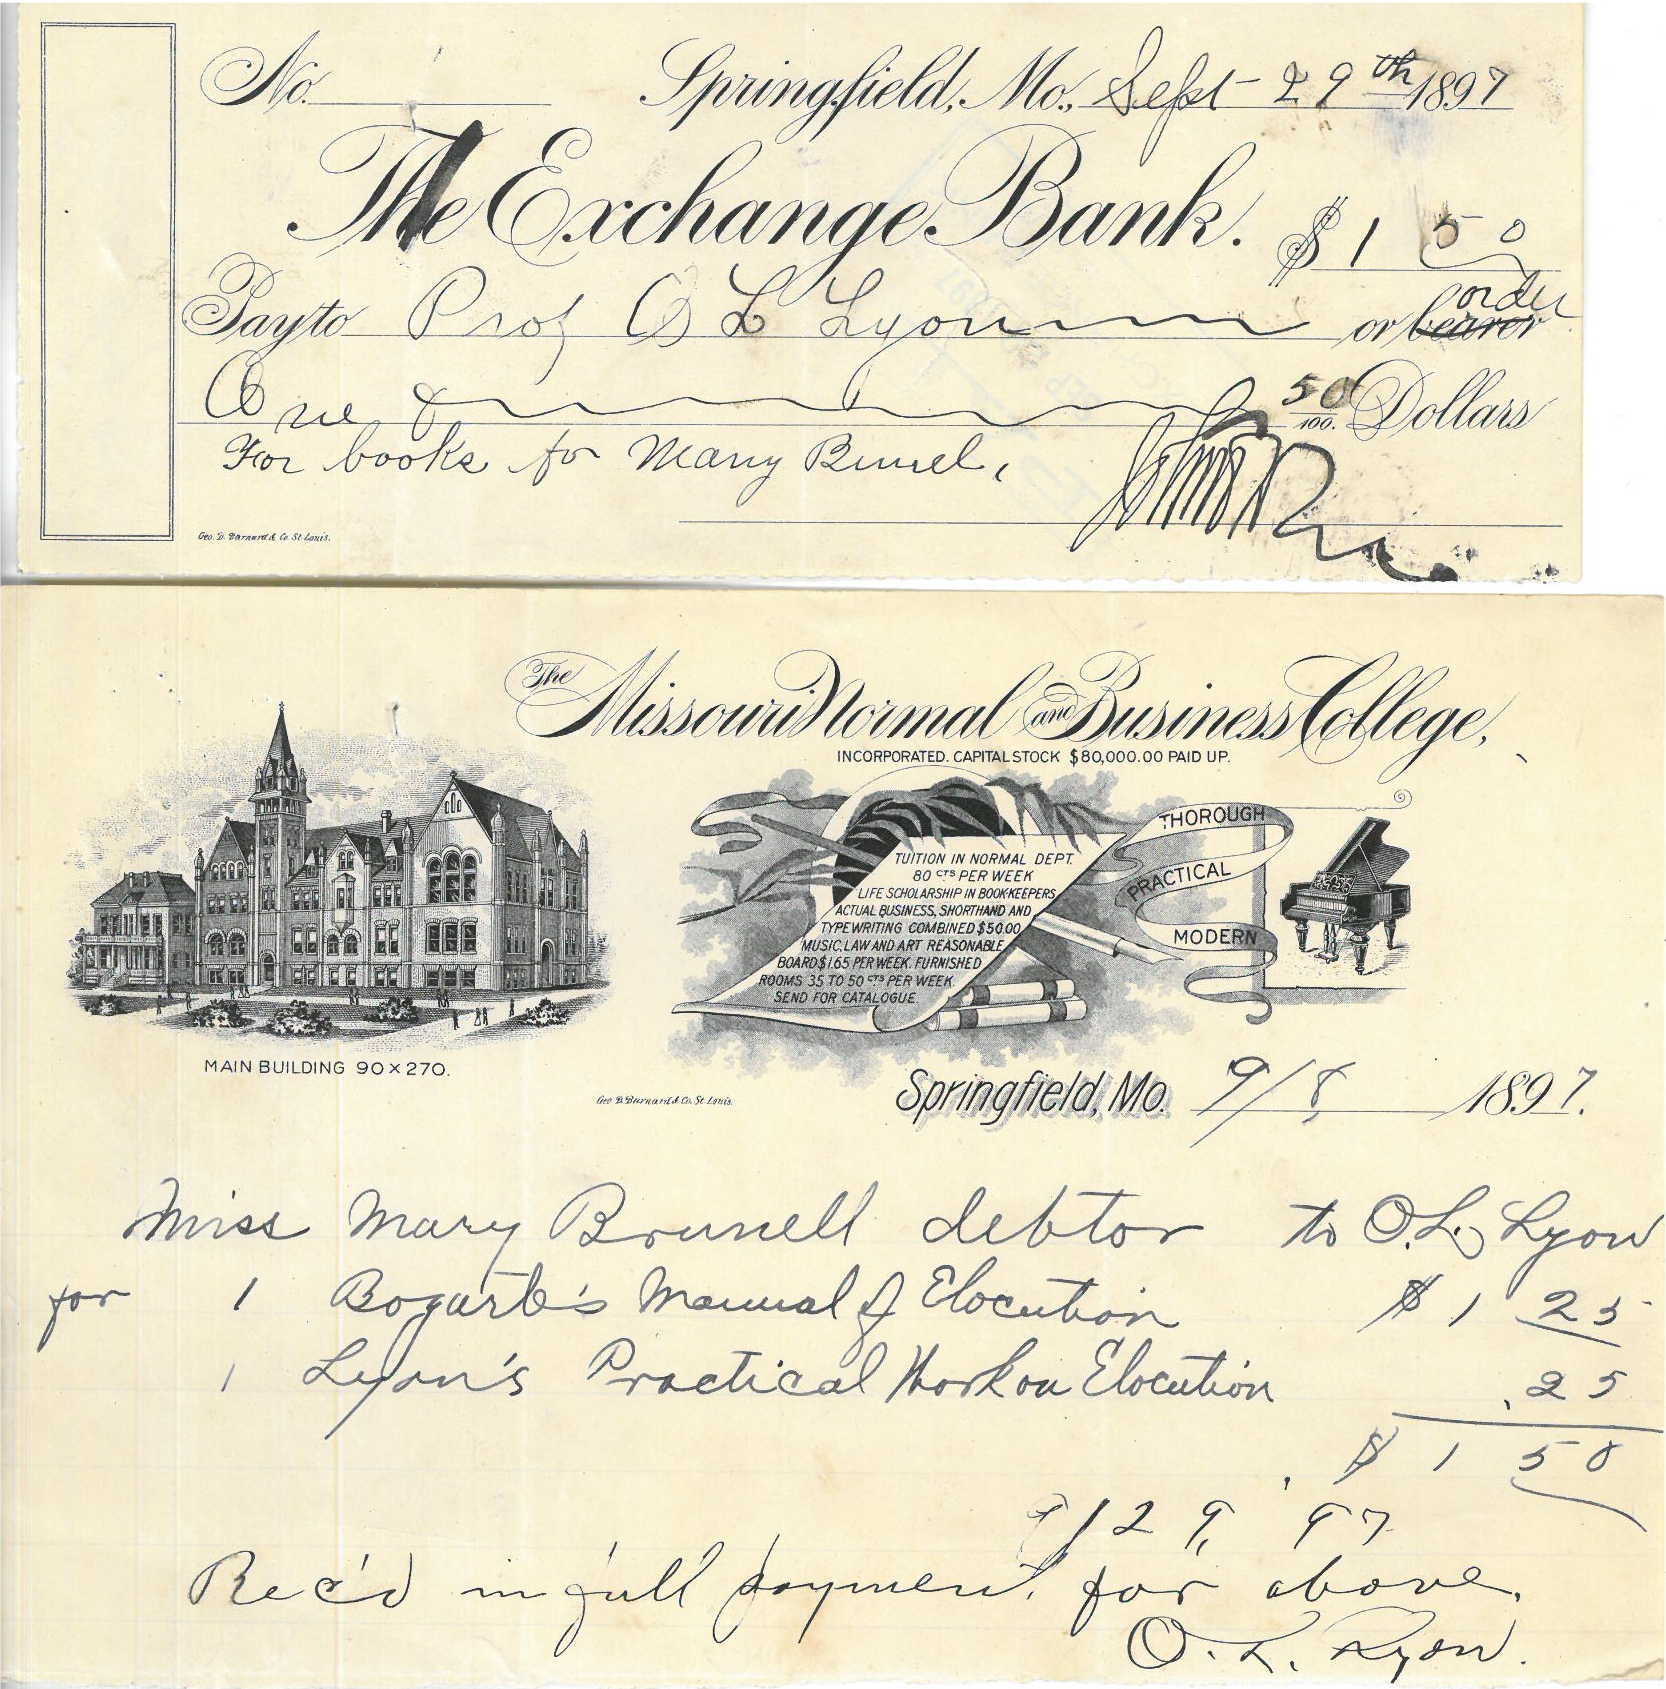 No.
Springfield, Mo., Sept 29th 1897
The Exchange Bank.
$ 1 50
Pay to Prof O L Lyon or bearer order
One 50/100. Dollars
For books for Mary Brunel.
Geo. D. Barnard & Co. St. Louis.
The Missouri Normal and Business College,
INCORPORATED. CAPITAL STOCK $80,000.00 PAID UP.
THOROUGH
PRACTICAL
MODERN
TUITION IN NORMAL DEPT.
80 CTS PER WEEK
LIFE SCHOLARSHIP IN BOOKKEEPERS
ACTUAL BUSINESS, SHORTHAND AND
TYPEWRITING COMBINED $50.00
MUSIC, LAW AND ART REASONABLE
BOARD $1.65 PER WEEK. FURNISHED
ROOMS 35 TO 50 CTS PER WEEK.
SEND FOR CATALOGUE.
MAIN BUILDING 90 x 270.
Geo. D. Barnard & Co. St. Louis.
Springfield, Mo. 9/8 1897.
Miss Mary Brunell debtor to O.L. Lyon
for 1 Bogart's Manual of Elocution $ 1 25
1 Lyon's Practical Work on Elocution .25
$ 1 50
9/29, 97
Rec'd in full payment for above.
O. L. Lyon.